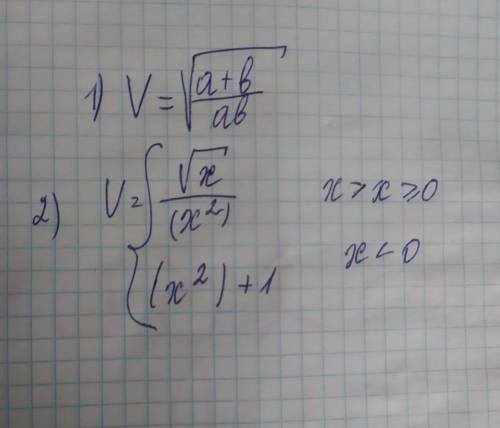 1) V = √((a+b)/(ab))
2) V = { √x/(x²) x > x ≥ 0
(x²) + 1 x < 0